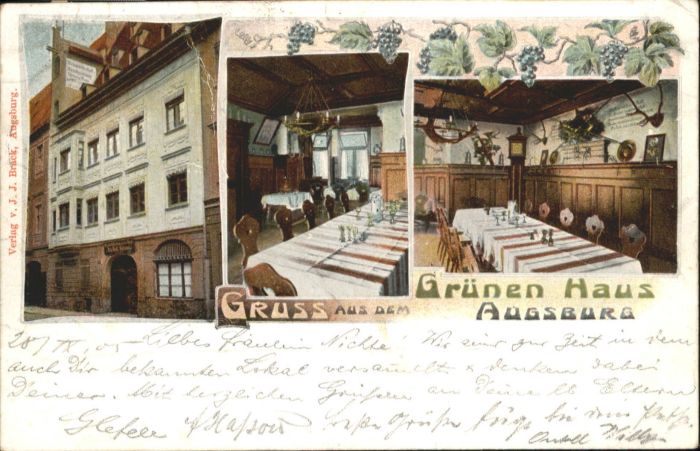 Verlag v. J. J. Brück, Augsburg.
GRUSS AUS DEM
Grünen Haus
AUGSBURG
28/IV 05 - Liebes Fräulein Nichte! Wir sind zur Zeit in dem
auch Dir bekannten Lokal versammelt & denken dabei
Deiner. Mit herzlichen Grüßen an Deine ll Eltern
Grüße fügt bei